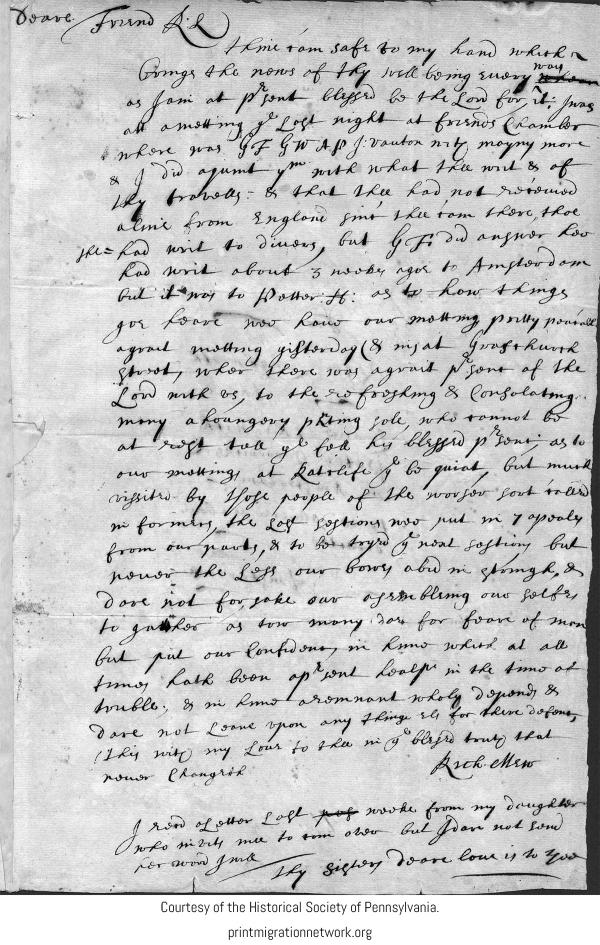 Deare Friend R:L
thine cam safe to my hand which
brings the news of thy well being every way
as I am at prsent blessed be the Lord for it: I was
att a metting ye Last night at friends Chamber
where was GF GW AP J: vauton with mayny more
& I did aquint ym with what thee writ & of
thy travells: & that thee had not received
a line from England sinc thee cam there, thoe
she= had writ to divers, but GF: did answer hee
had writ about 3 weekes agoe to Amsterdam
but it was to Petter H: as to how things
goe heare wee have our metting pritty
a grait metting yisterday (& ) at Graschurch
street, wher there was a grait prsent of the
Lord with us, to the refreshing & Consolating
many a houngery sole, who cannot be
at rest tell ye fell his blessed prsent; as to
our mettings at Ratclife ye be quiat, but much
vissited by those people of the worser sort called
in formers, the Last sestions wee put in 7 apeales
from our parts, & to be tryed ye next sestions but
never the Less our bowes abid in strength, &
dare not for sake our asembling our selfes
to gather as tow many doe for feare of man
but put our Confident, in hime which at all
times hath been a prsent healpr in the time of
truble; & in hime a remnant wholy depends &
dare not Leane upon any thinge els for there defent,
(This with my Love to thee in ye blessed truth that
never Changeth
Rich: Mew
I recd a Letter Last weeke from my daughter
who invits mee to com over but I dare not send
her word I will
Thy Sisters deare love is to thee
Courtesy of the Historical Society of Pennsylvania.
printmigrationnetwork.org